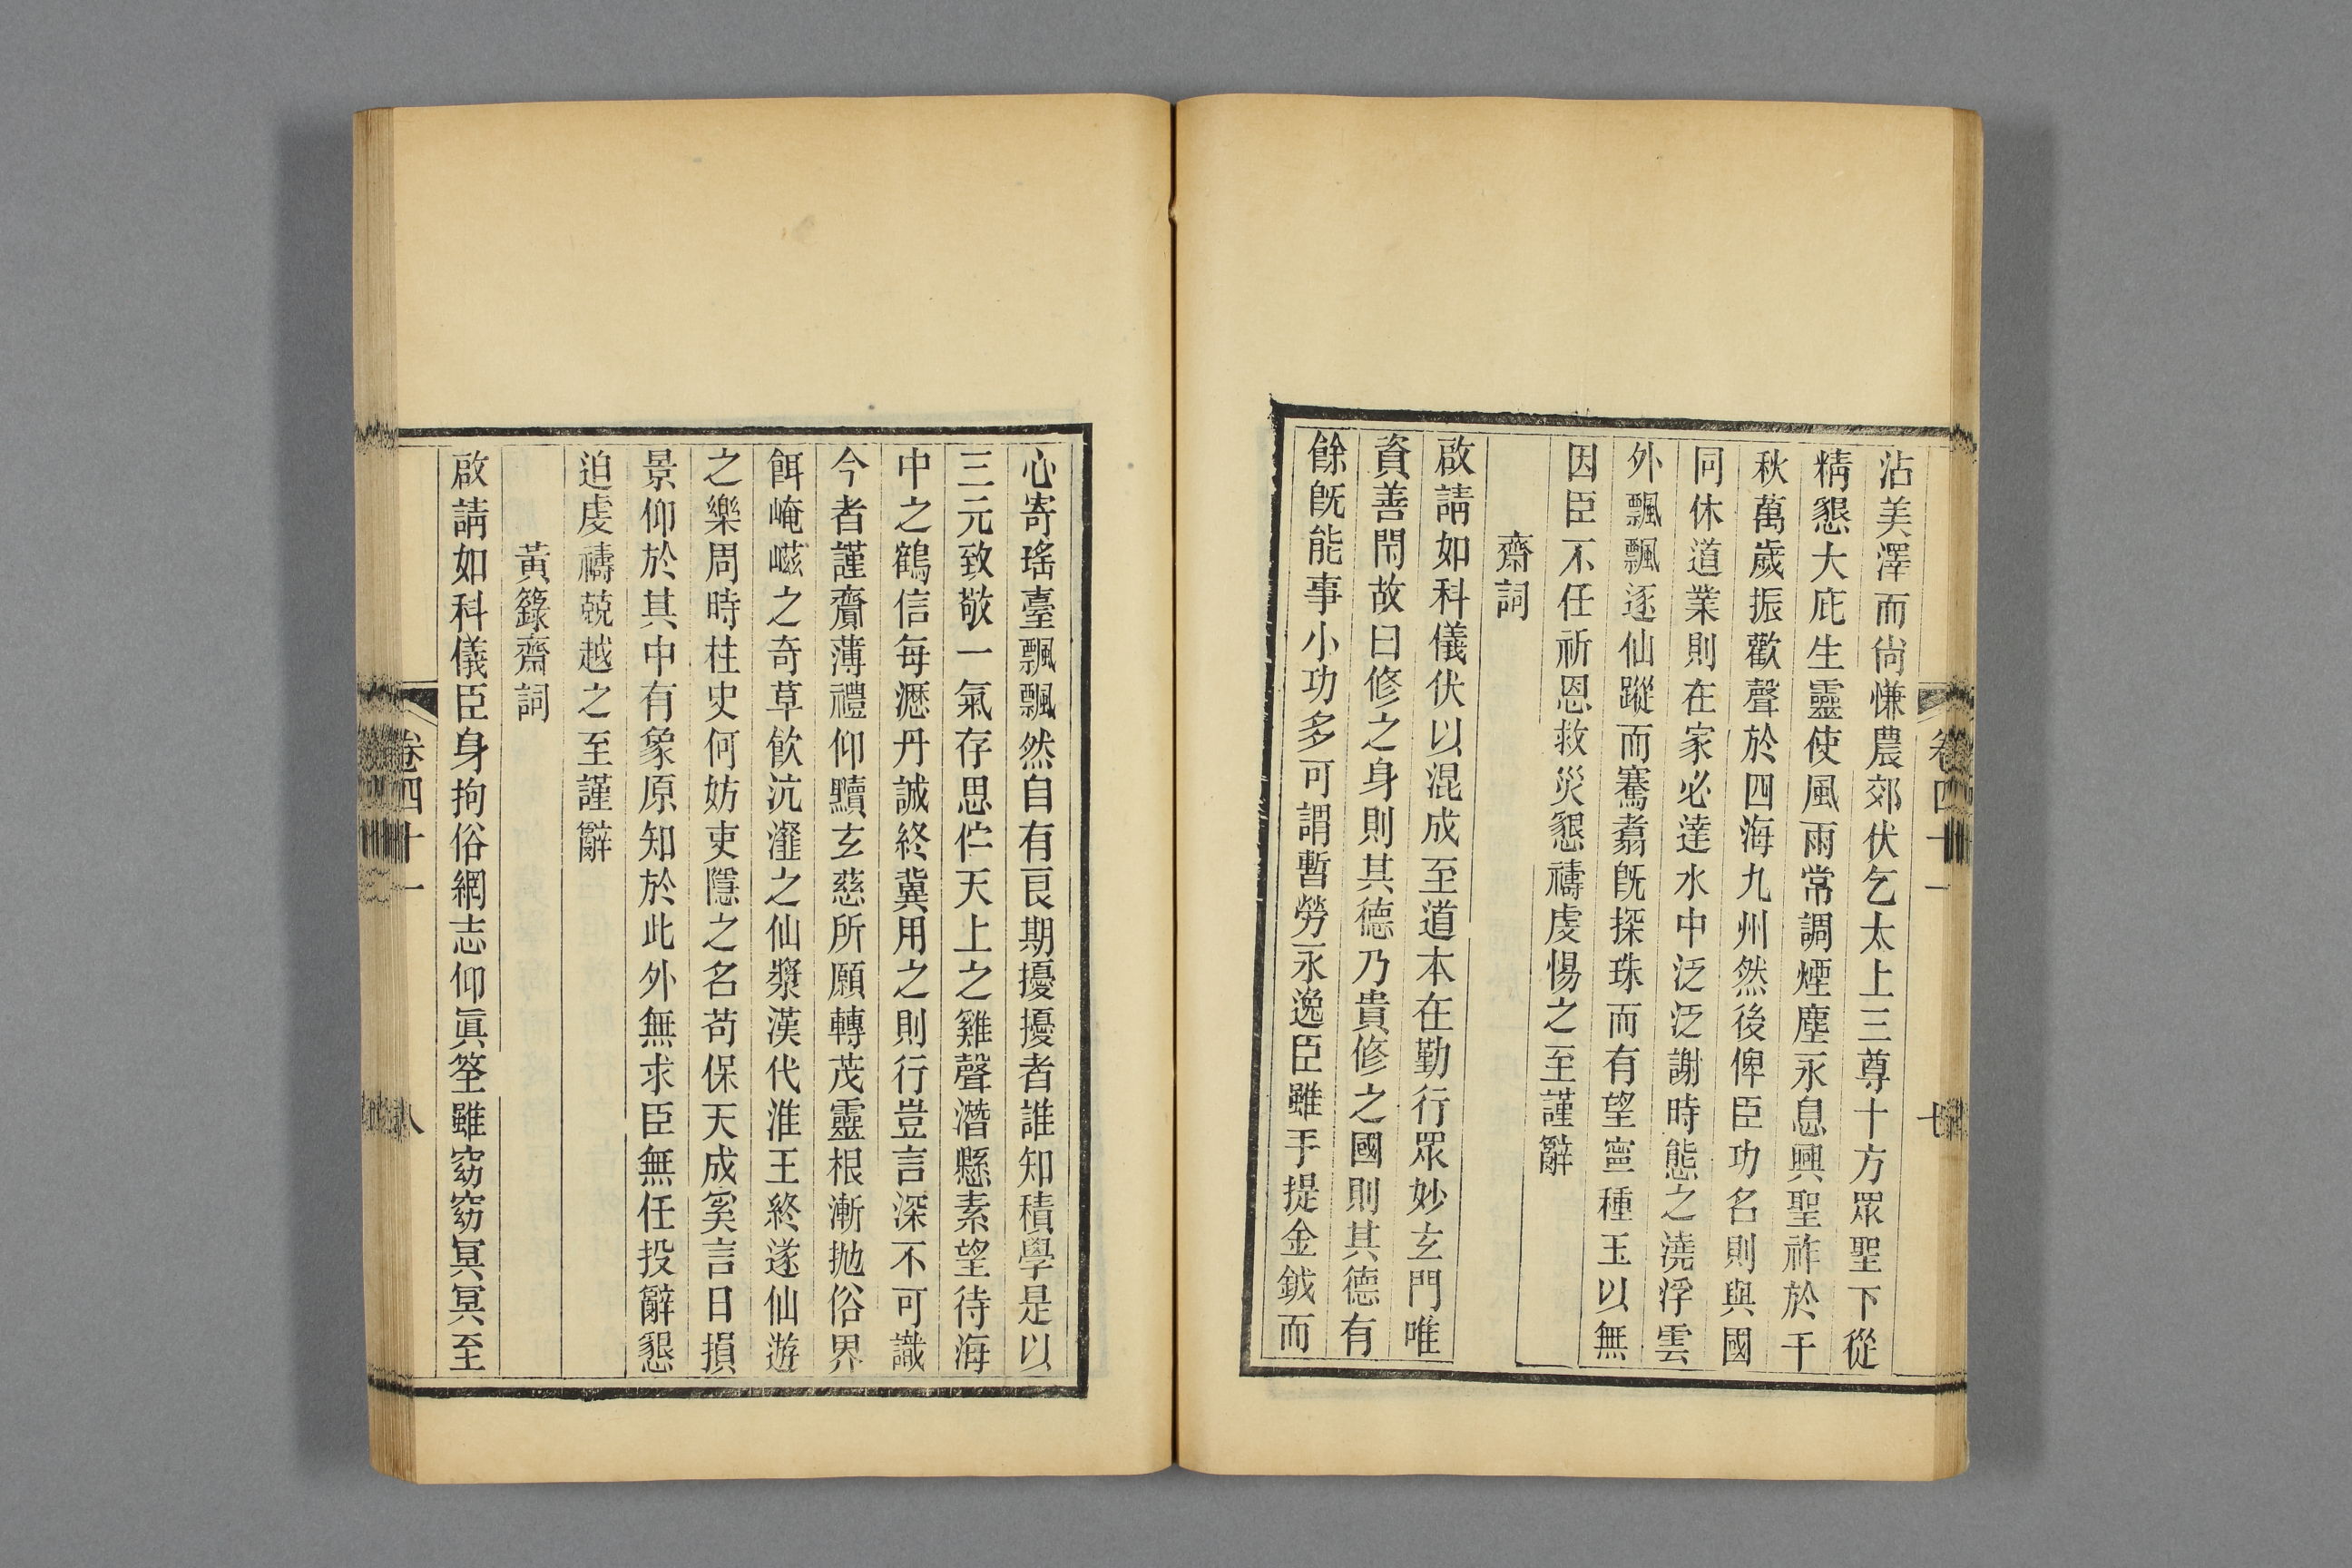 卷四十一
七
沾美澤而尙慊農郊伏乞太上三尊十方眾聖下從
精懇大庇生靈使風雨常調煙塵永息興聖祚於千
秋萬歲振歡聲於四海九州然後俾臣功名則與國
同休道業則在家必達水中泛泛謝時態之澆浮雲
外飄飄逐仙蹤而騫翥旣探珠而有望寧種玉以無
因臣不任祈恩救災懇禱虔惕之至謹辭
齋詞
啟請如科儀伏以混成至道本在勤行眾妙玄門唯
資善閇故曰修之身則其德乃貴修之國則其德有
餘旣能事小功多可謂暫勞永逸臣雖手提金鉞而
心寄瑤臺飄飄然自有良期擾擾者誰知積學是以
三元致敬一氣存思伫天上之雞聲潛懸素望待海
中之鶴信每瀝丹誠終冀用之則行豈言深不可識
今者謹齎薄禮仰黷玄慈所願轉茂靈根漸拋俗界
餌崦嵫之奇草飲沆瀣之仙漿漢代淮王終遂仙遊
之樂周時柱史何妨吏隱之名苟保天成奚言日損
景仰於其中有象原知於此外無求臣無任投辭懇
迫虔禱兢越之至謹辭
黃籙齋詞
啟請如科儀臣身拘俗網志仰眞筌雖窈窈冥冥至
卷四十一
八